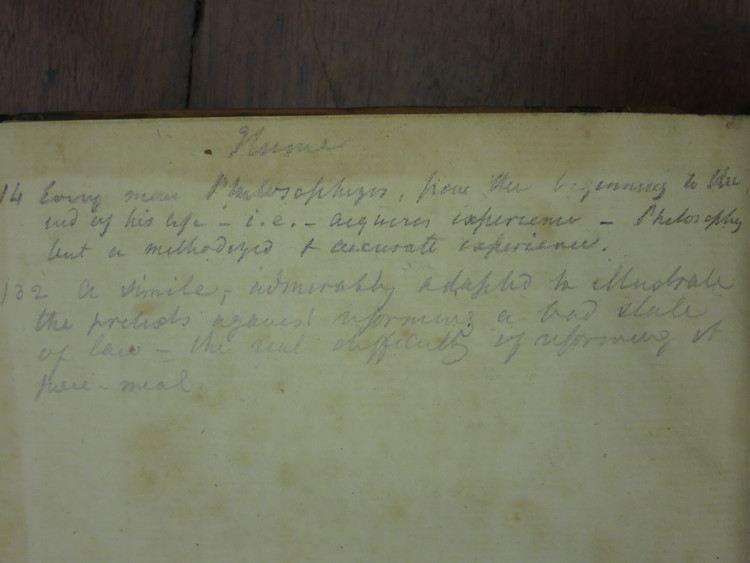 Hume
14 Every man Philosophizes, from the beginning to the
end of his life - i.e. - acquires experience - Philosophy
but a methodized & accurate experience.
132 A simile, admirably adapted to illustrate
the pretexts against reforming a bad state
of law - the real difficulty of reforming it
piece-meal